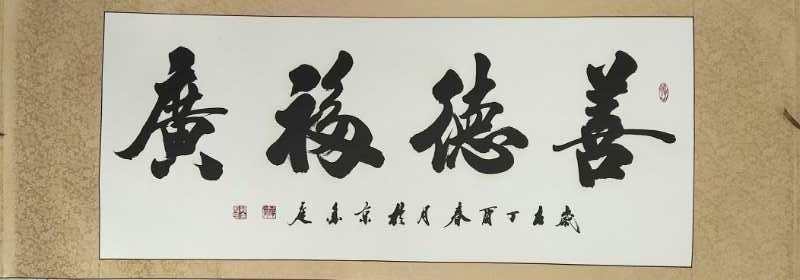 善德福廣
歲在丁酉春月於京